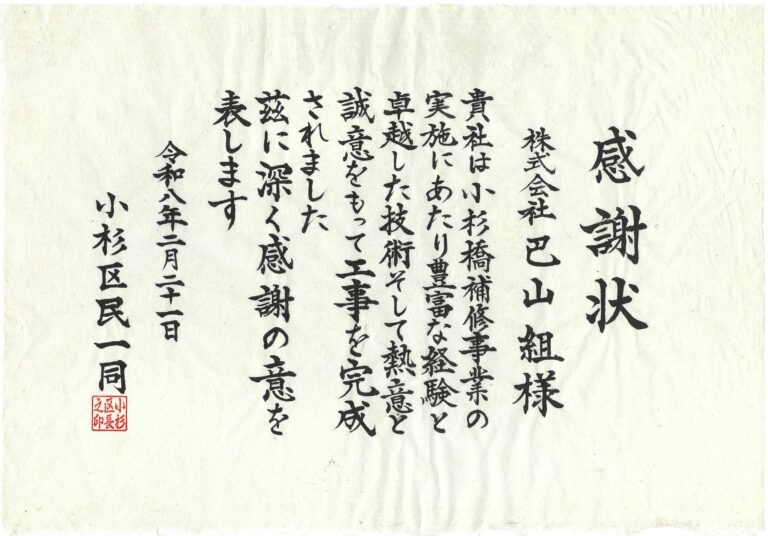 感謝状
株式会社 巴山組様
貴社は小杉橋補修事業の
実施にあたり豊富な経験と
卓越した技術そして熱意と
誠意をもって工事を完成
されました
茲に深く感謝の意を
表します
令和八年二月二十一日
小杉区民一同
小杉
区長
之印